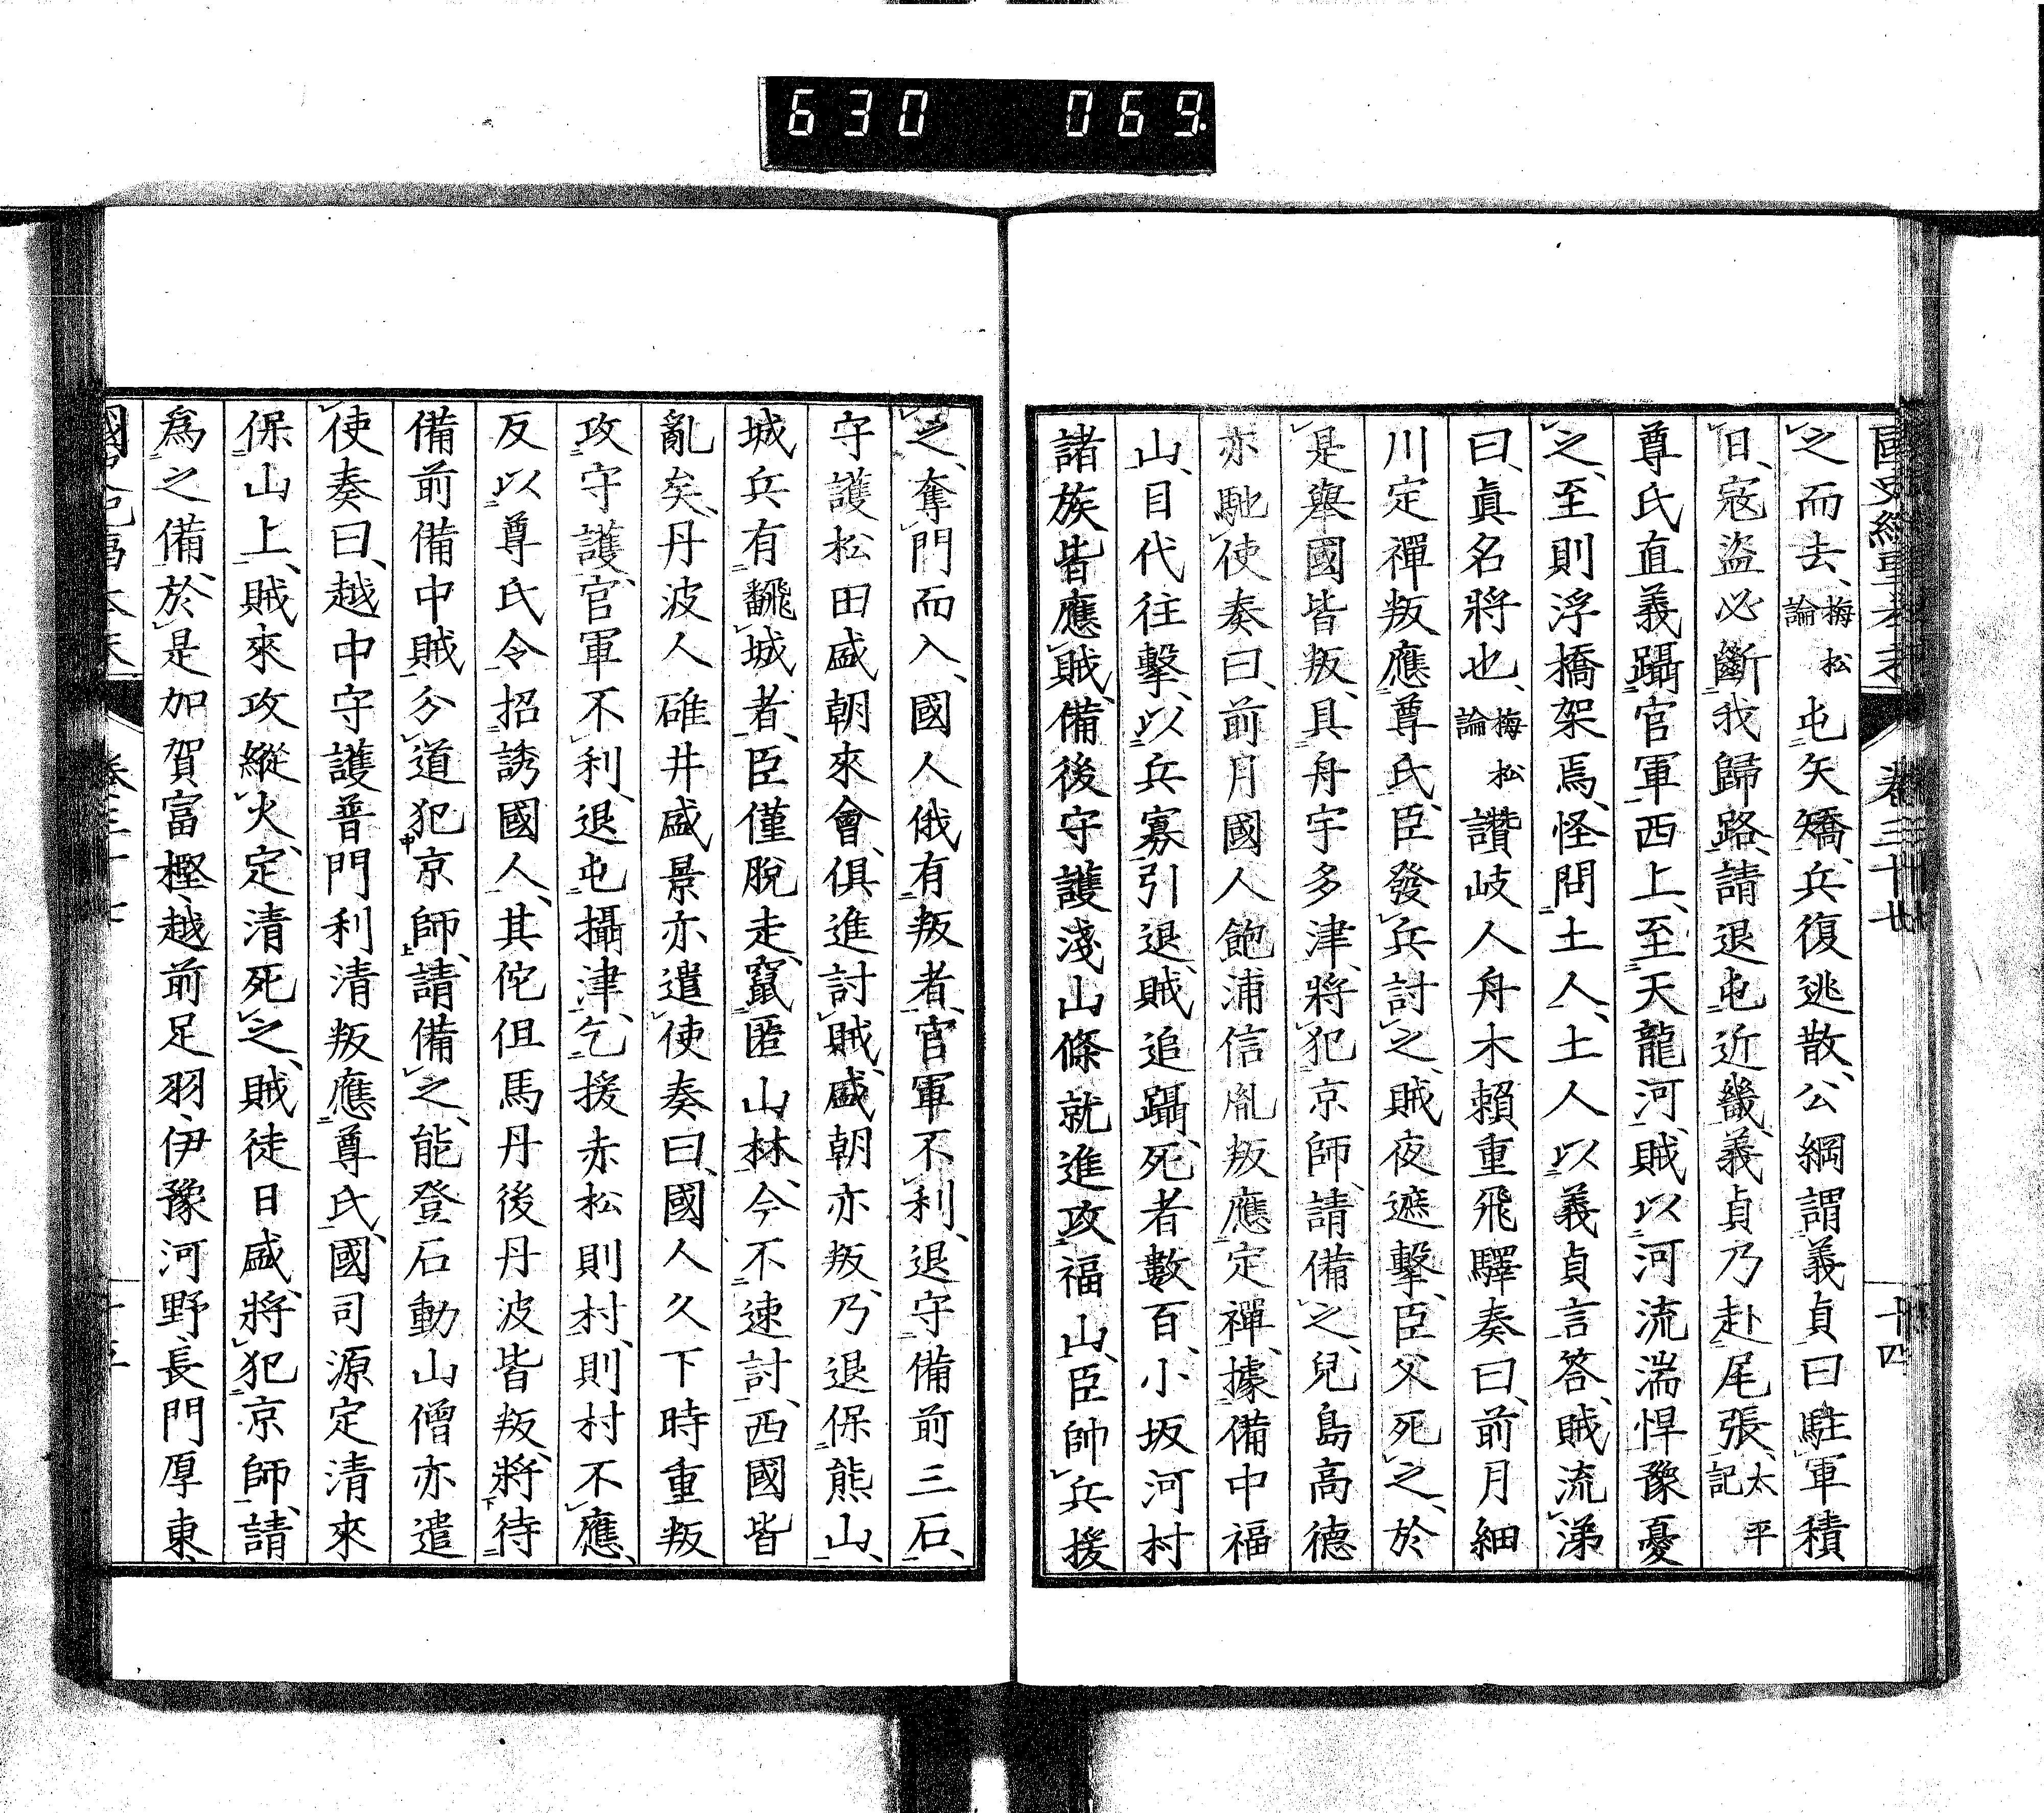 630 069.
之而去、梅松論屯矢矯、兵復逃散、公綱謂義貞曰駐軍積
日、寇盜必斷我歸路、請退屯近畿、義貞乃赴尾張、太平記
尊氏直義躡官軍西上、至天龍河、賊以河流湍悍豫憂
之、至則浮橋架焉、怪問土人、土人以義貞言答、賊流涕
曰、眞名將也、梅松論讚岐人舟木賴重飛驛奏曰、前月細
川定禪叛應尊氏、臣發兵討之、賊夜遮擊、臣父死之、於
是舉國皆叛、具舟宇多津、將犯京師、請備之、兒島高德
亦馳使奏曰、前月國人飽浦信胤叛應定禪、據備中福
山、目代往擊、以兵寡引退、賊追躡、死者數百、小坂河村
諸族皆應賊、備後守護淺山條就進攻福山、臣帥兵援
之、奪門而入、國人俄有叛者、官軍不利、退守備前三石、
守護松田盛朝來會、俱進討賊、盛朝亦叛、乃退保熊山、
城兵有飜城者、臣僅脫走、竄匿山林、今不速討、西國皆
亂矣、丹波人碓井盛景亦遣使奏曰、國人久下時重叛
攻守護、官軍不利、退屯攝津、乞援赤松則村、則村不應、
反以尊氏令招誘國人、其佗但馬丹後丹波皆叛、將待
備前備中賊、分道犯京師、請備之、能登石動山僧亦遣
使奏曰、越中守護普門利清叛應尊氏、國司源定清來
保山上、賊來攻縱火、定清死之、賊徒日盛、將犯京師、請
爲之備、於是加賀富樫、越前足羽、伊豫河野、長門厚東、